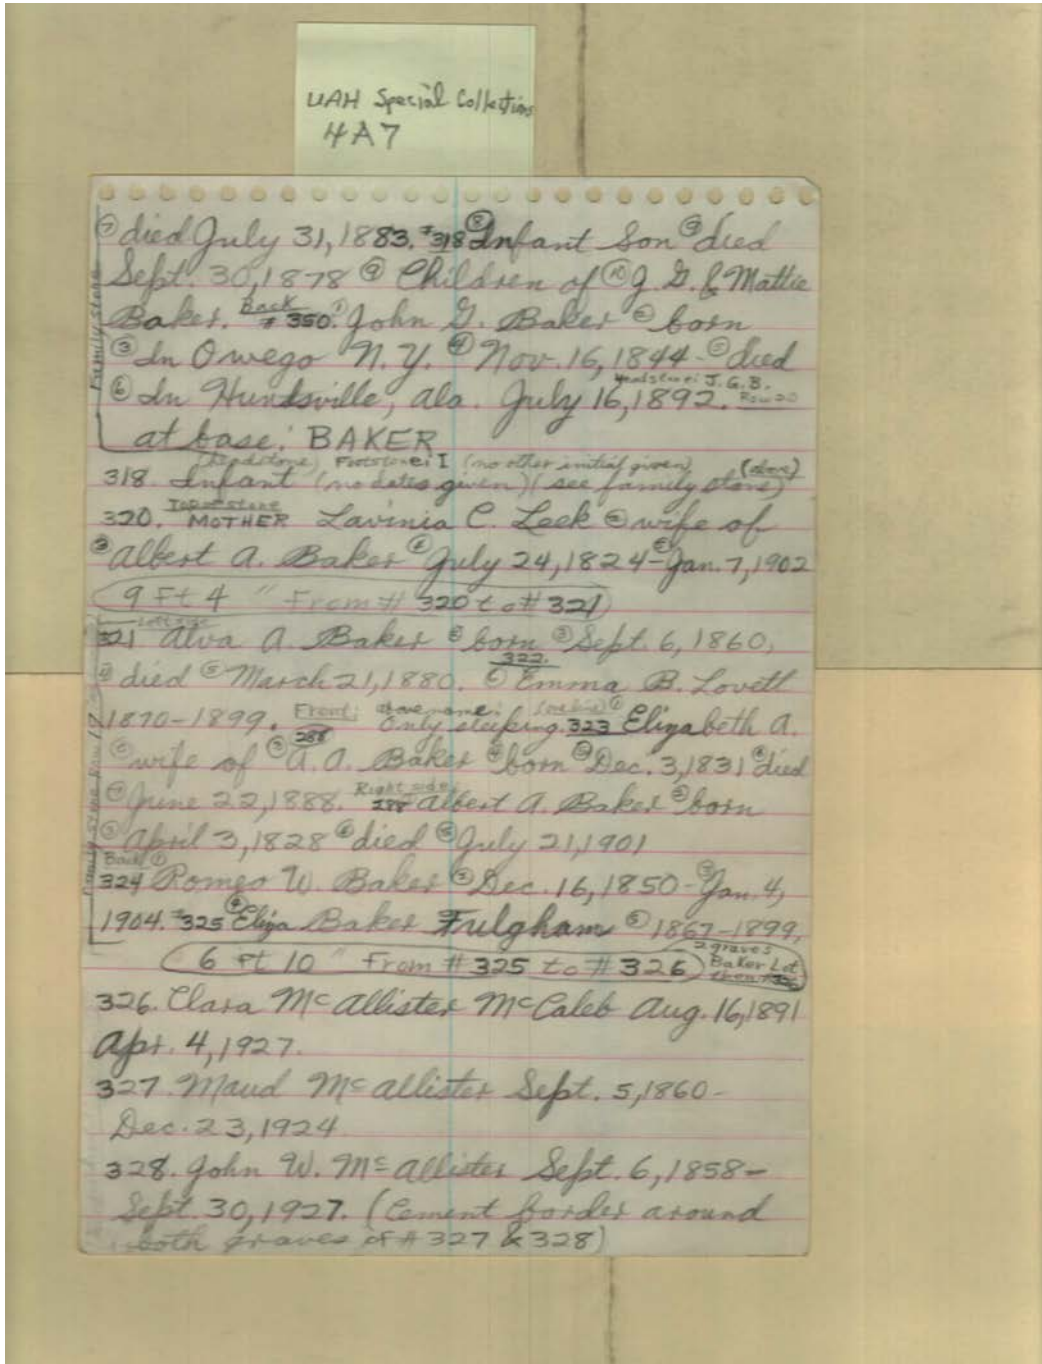 UAH Special Collections
4A7
⑦ died July 31, 1883. #318 ⑧ Infant Son ⑨ died
Sept. 30, 1878 ⑨ Children of ⑩ J. G. & Mattie
Baker. Back #350. ① John G. Baker ② born
③ In Owego N.Y. ④ Nov. 16, 1844 - ⑤ died
⑥ In Huntsville, Ala. July 16, 1892. Headstone: J.G.B. Row 20
Family stone
at base: BAKER
(headstone) Footstone: I (no other initial given) (above)
318. Infant (no dates given) (see family stone)
Top of stone
320. MOTHER Lavinia C. Leek ② wife of
③ Albert A. Baker ④ July 24, 1824 - ⑤ Jan. 7, 1902
9 Ft 4 " From # 320 to # 321
Left side
321 Alva A. Baker ② born ③ Sept. 6, 1860,
④ died ⑤ March 21, 1880. 322. ⑥ Emma B. Lovett
1870-1899. Front: above name: Only sleeping. 323 Elizabeth A.
288
② wife of ③ A. A. Baker ④ born ⑤ Dec. 3, 1831 ⑥ died
⑦ June 22, 1888. Right side 288 Albert A. Baker ② born
③ April 3, 1828 ④ died ⑤ July 21, 1901
Back ①
324 Romeo W. Baker ② Dec. 16, 1850 - ③ Jan. 4,
1904. #325 ④ Eliza Baker Fulgham ⑤ 1867-1899.
Family stone Row 17
6 Ft 10 " From # 325 to # 326 2 graves Baker Lot then
326. Clara McAllister McCaleb Aug. 16, 1891
Apr. 4, 1927.
327. Maud McAllister Sept. 5, 1860 -
Dec. 23, 1924
328. John W. McAllister Sept. 6, 1858 -
Sept. 30, 1927. (Cement border around
both graves of # 327 & 328)